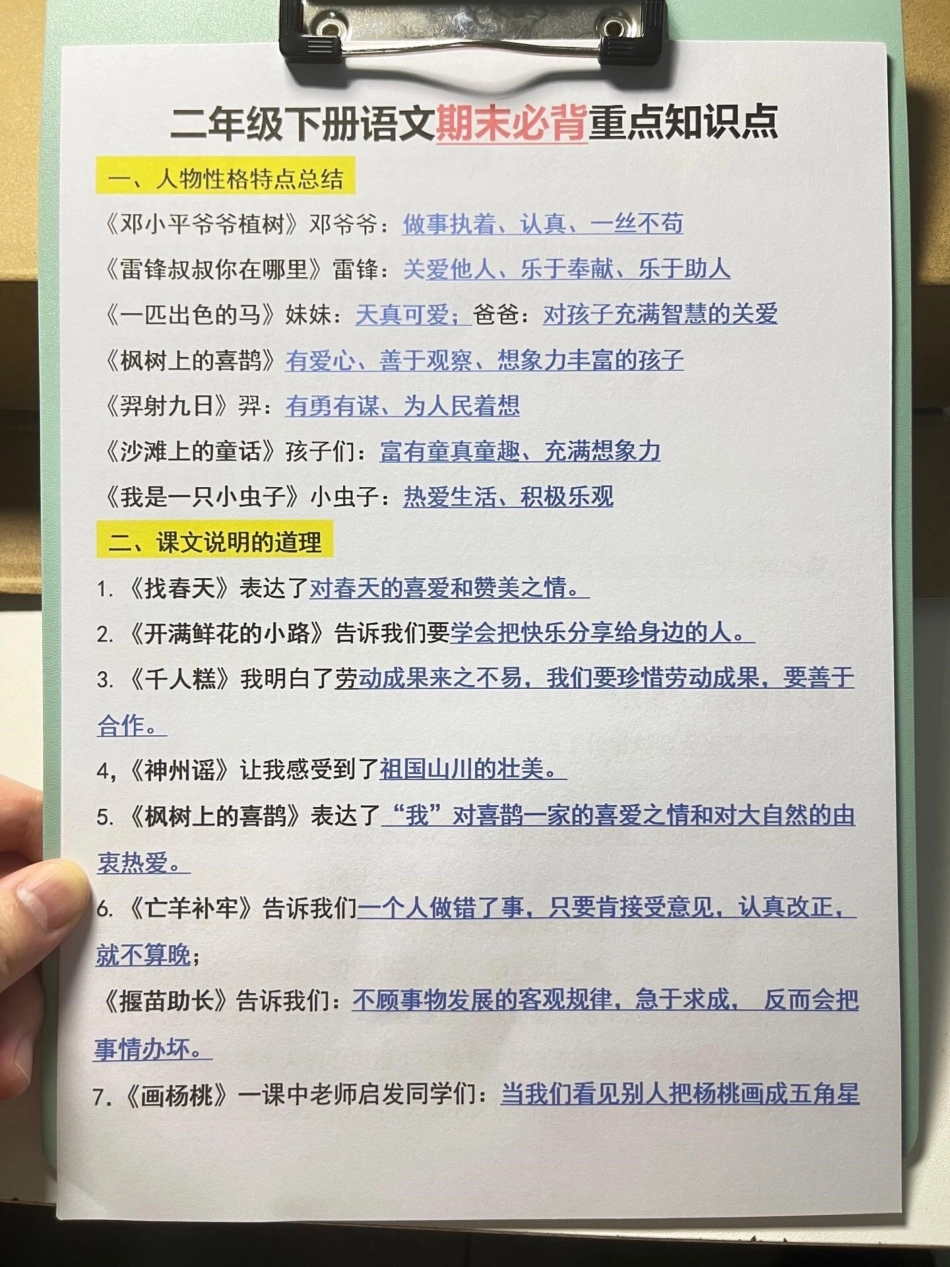 二年级下册语文期末必背重点知识点
一、人物性格特点总结
《邓小平爷爷植树》邓爷爷：做事执着、认真、一丝不苟
《雷锋叔叔你在哪里》雷锋：关爱他人、乐于奉献、乐于助人
《一匹出色的马》妹妹：天真可爱；爸爸：对孩子充满智慧的关爱
《枫树上的喜鹊》有爱心、善于观察、想象力丰富的孩子
《羿射九日》羿：有勇有谋、为人民着想
《沙滩上的童话》孩子们：富有童真童趣、充满想象力
《我是一只小虫子》小虫子：热爱生活、积极乐观
二、课文说明的道理
1.《找春天》表达了对春天的喜爱和赞美之情。
2.《开满鲜花的小路》告诉我们要学会把快乐分享给身边的人。
3.《千人糕》我明白了劳动成果来之不易，我们要珍惜劳动成果，要善于
合作。
4,《神州谣》让我感受到了祖国山川的壮美。
5.《枫树上的喜鹊》表达了“我”对喜鹊一家的喜爱之情和对大自然的由
衷热爱。
6.《亡羊补牢》告诉我们一个人做错了事，只要肯接受意见，认真改正，
就不算晚；
《揠苗助长》告诉我们：不顾事物发展的客观规律，急于求成， 反而会把
事情办坏。
7.《画杨桃》一课中老师启发同学们：当我们看见别人把杨桃画成五角星